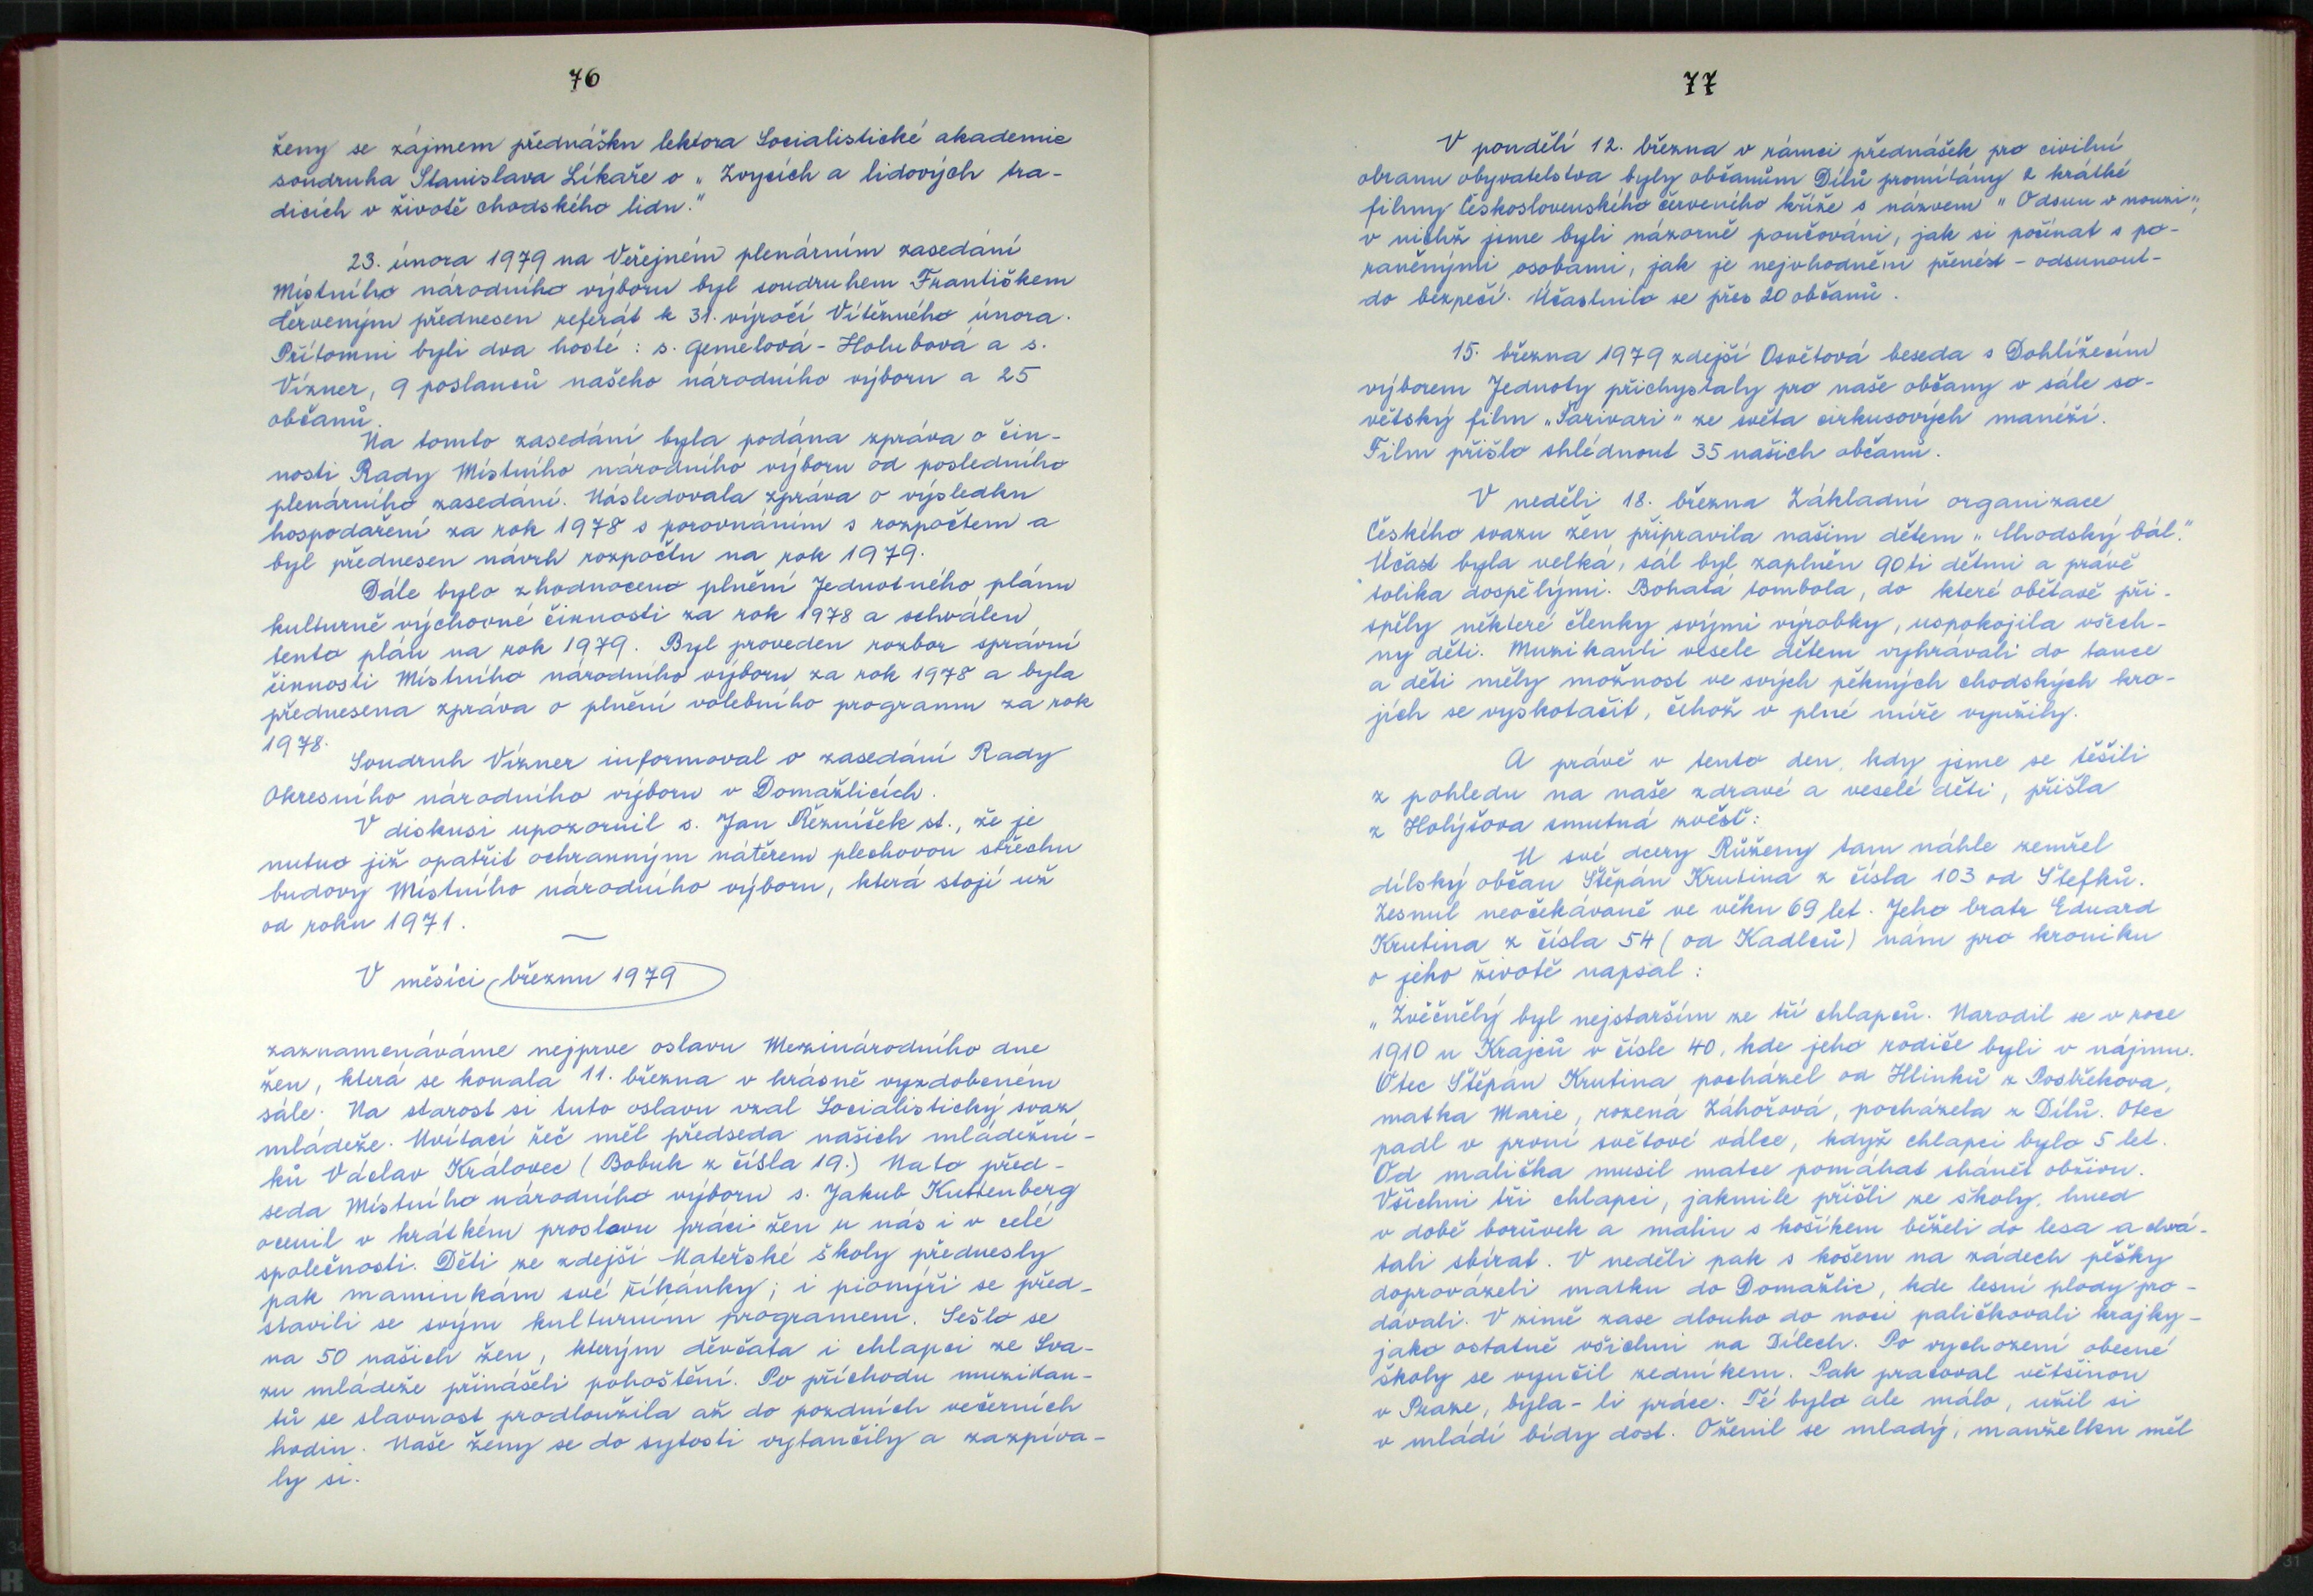 76
ženy se zájmem přednášku lektora Socialistické akademie
soudruha Stanislava Likaře o „Zvycích a lidových tra-
dicích v životě chodského lidu."
23. února 1979 na Veřejném plenárním zasedání
Místního národního výboru byl soudruhem Františkem
Červeným přednesen referát k 31. výročí Vítězného února.
Přítomni byli dva hosté: s. Gemelová - Holubová a s.
Vízner, 9 poslanců našeho národního výboru a 25
občanů.
Na tomto zasedání byla podána zpráva o čin-
nosti Rady Místního národního výboru od posledního
plenárního zasedání. Následovala zpráva o výsledku
hospodaření za rok 1978 s porovnáním s rozpočtem a
byl přednesen návrh rozpočtu na rok 1979.
Dále bylo zhodnoceno plnění Jednotného plánu
kulturně výchovné činnosti za rok 1978 a schválen
tento plán na rok 1979. Byl proveden rozbor správní
činnosti Místního národního výboru za rok 1978 a byla
přednesena zpráva o plnění volebního programu za rok
1978.
Soudruh Vízner informoval o zasedání Rady
Okresního národního výboru v Domažlicích.
V diskusi upozornil s. Jan Řezníček st., že je
nutno již opatřit ochranným nátěrem plechovou střechu
budovy Místního národního výboru, která stojí už
od roku 1971.
V měsíci březnu 1979
zaznamenáváme nejprve oslavu Mezinárodního dne
žen, která se konala 11. března v krásně vyzdobeném
sále. Na starost si tuto oslavu vzal Socialistický svaz
mládeže. Uvítací řeč měl předseda našich mládežní-
ků Václav Královec (Bobuk z čísla 19.) Nato před-
seda Místního národního výboru s. Jakub Kuttenberg
ocenil v krátkém proslovu práci žen u nás i v celé
společnosti. Děti ze zdejší Mateřské školy přednesly
pak maminkám své říkánky; i pionýři se před-
stavili se svým kulturním programem. Sešlo se
na 50 našich žen, kterým děvčata i chlapci ze Sva-
zu mládeže přinášeli pohoštění. Po příchodu muzikan-
tů se slavnost prodloužila až do pozdních večerních
hodin. Naše ženy se do sytosti vytančily a zazpíva-
ly si.
77
V pondělí 12. března v rámci přednášek pro civilní
obranu obyvatelstva byly občanům Dílů promítány 2 krátké
filmy Československého červeného kříže s názvem "Odsun v nouzi",
v nichž jsme byli názorně poučováni, jak si počínat s po-
raněnými osobami, jak je nejvhodněni přenést - odsunout -
do bezpečí. Účastnilo se přes 20 občanů.
15. března 1979 zdejší Osvětová beseda s Dohlížecím
výborem Jednoty přichystaly pro naše občany v sále so-
větský film „Šarivari" ze světa cirkusových manéží.
Film přišlo shlédnout 35 našich občanů.
V neděli 18. března Základní organizace
Českého svazu žen připravila našim dětem „Chodský bál."
Účast byla velká, sál byl zaplněn 90ti dětmi a právě
tolika dospělými. Bohatá tombola, do které obětavě při-
spěly některé členky svými výrobky, uspokojila všech-
ny děti. Muzikanti vesele dětem vyhrávali do tance
a děti měly možnost ve svých pěkných chodských kro-
jích se vyskotačit, čehož v plné míře využily.
A právě v tento den, kdy jsme se těšili
z pohledu na naše zdravé a veselé děti, přišla
z Holýšova smutná zvěst:
U své dcery Růženy tam náhle zemřel
dílský občan Štěpán Krutina z čísla 103 od Štefků.
Zesnul neočekávaně ve věku 69 let. Jeho bratr Eduard
Krutina z čísla 54 (od Kadlců) nám pro kroniku
o jeho životě napsal:
„Zvěčnělý byl nejstarším ze tří chlapců. Narodil se v roce
1910 u Krajců v čísle 40, kde jeho rodiče byli v nájmu.
Otec Štěpán Krutina pocházel od Hlinků z Postřekova,
matka Marie, rozená Záhořová, pocházela z Dílů. Otec
padl v první světové válce, když chlapci bylo 5 let.
Od malička musil matce pomáhat shánět obživu.
Všichni tři chlapci, jakmile přišli ze školy, hned
v době borůvek a malin s košíkem běželi do lesa a chvá-
tali sbírat. V neděli pak s košem na zádech pěšky
doprovázeli matku do Domažlic, kde lesní plody pro-
dávali. V zimě zase dlouho do noci paličkovali krajky -
jako ostatně všichni na Dílech. Po vychození obecné
školy se vyučil zedníkem. Pak pracoval většinou
v Praze, byla-li práce. Té bylo ale málo, užil si
v mládí bídy dost. Oženil se mladý, manželku měl